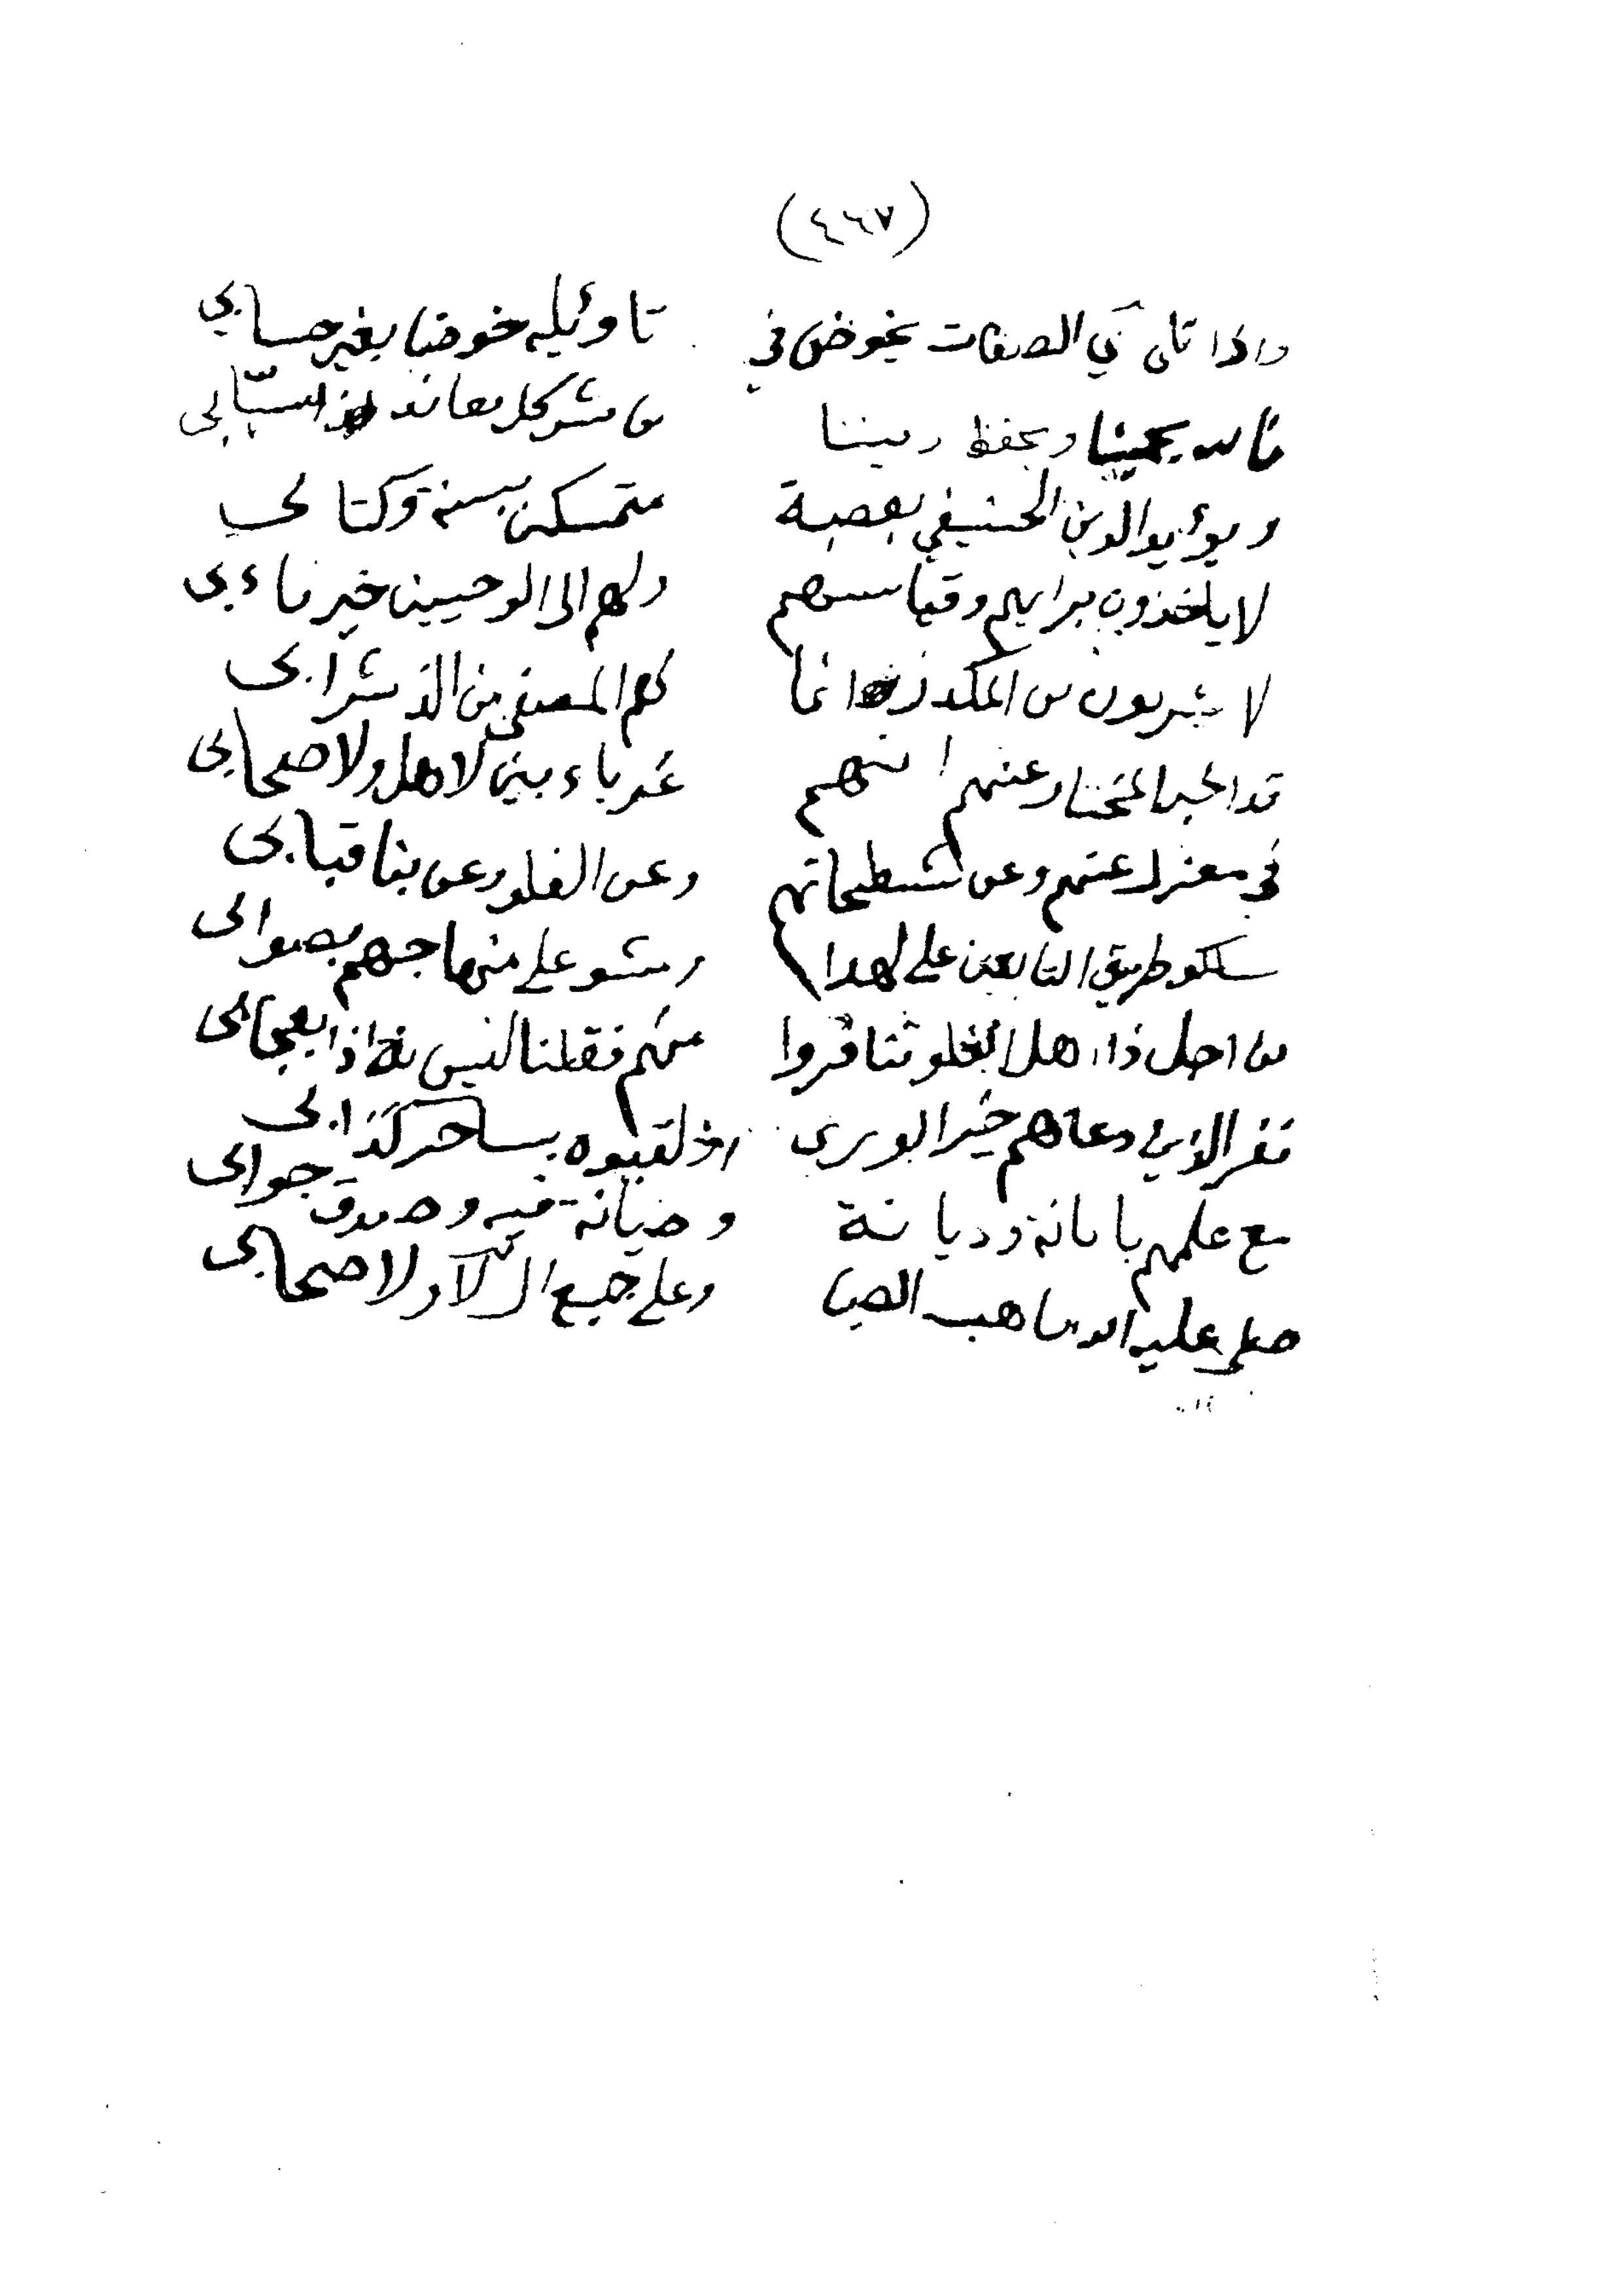 (٤٦٧)
واذا تلى آي الصفات يخوض في تاوئيله خوضا بغير حسابي
فالله يحمينا ويحفظ ديننا من شر كل معاند سبّابي
ويوءيد الدين الحنيفي بعصبة متمسكين بسنة وكتابي
لا ياخذون برايهم وقياسهم ولهم الى الوحيين خير ماءبي
لا يشربون من المكدر انما لهم المصفى من الذ شرابي
قد اخبر المختار عنهم انهم غرباء بين لاهل ولا صحابي
في معزل عنهم وعن شطحاتهم وعن الغلو وعن بنا قبابي
سلكو طريق التابعين على لهدا ومشو على منهاجهم بصوابي
من اجل ذا اهل الغلو تنافروا منهم فقلنا ليس ذا بعجابي
نفر الذين دعاهم خير الورى اذ لقبوه بساحر كذابي
مع علمهم بامانة وديانة وصيانة فيه وصدق جوابي
صلى عليه الله ما هب الصبا وعلى جميع الال ولا صحابي